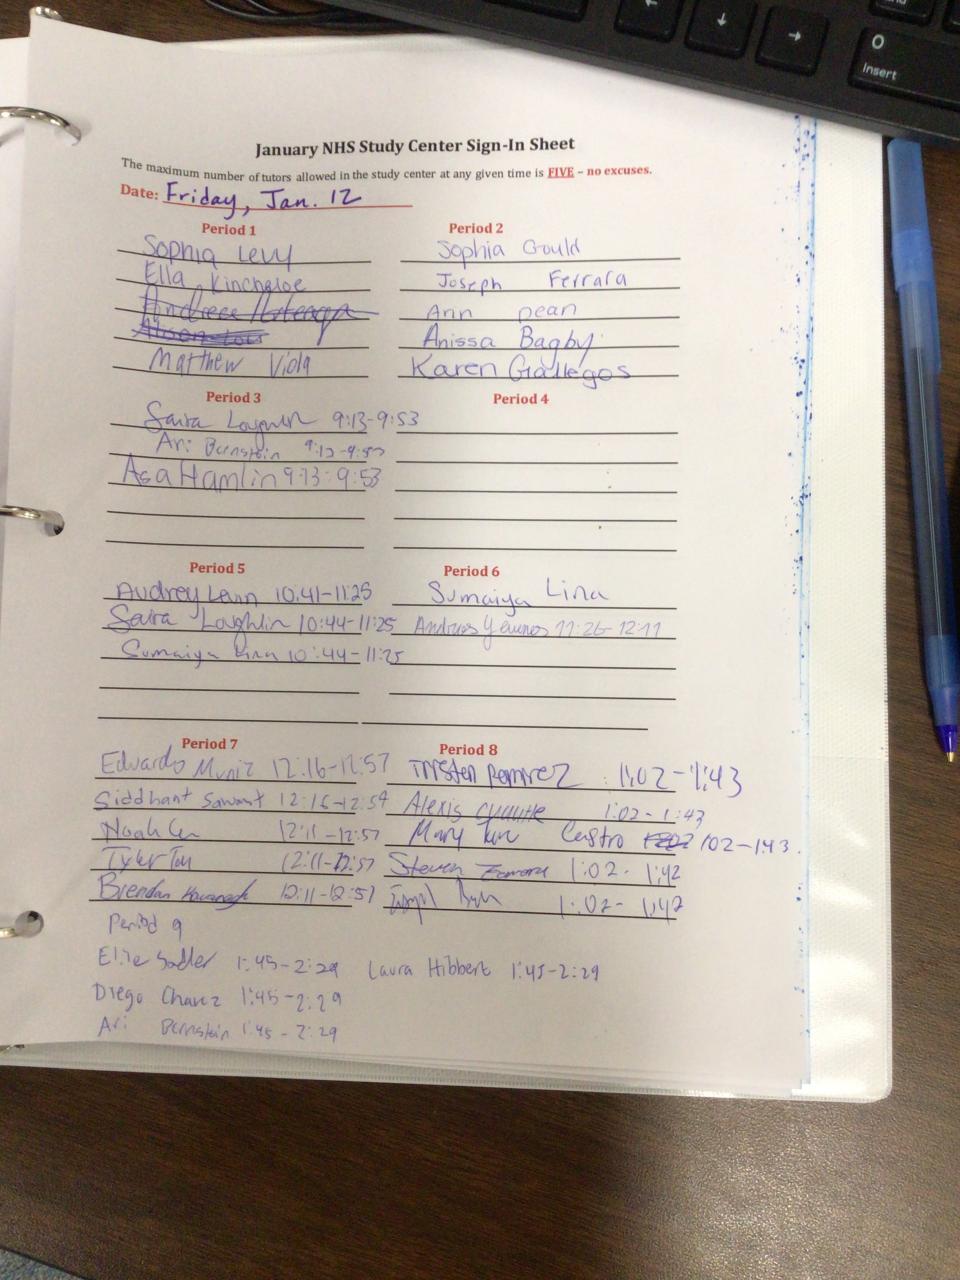 January NHS Study Center Sign-In Sheet
The maximum number of tutors allowed in the study center at any given time is FIVE – no excuses.
Date: Friday, Jan. 12
Period 1
Sophia Levy
Ella Kincheloe
Matthew Viola
Period 2
Sophia Gould
Joseph Ferrara
Ann Dean
Anissa Bagby
Karen Gallegos
Period 3
Saira Loughlin 9:13-9:53
Ari Bernstein 9:13-9:53
Asa Hamlin 9:13-9:53
Period 4
Period 5
Audrey Levin 10:41-11:25
Saira Loughlin 10:44-11:25
Sumaiya Lina 10:44-11:25
Period 6
Sumaiya Lina
Andres 11:26-12:11
Period 7
Eduardo Muniz 12:16-12:57
Siddhant Sawant 12:16-12:54
Noah 12:11-12:57
Tyler 12:11-12:57
Brendan Kavanagh 12:11-12:57
Period 8
Trysten Ramirez 1:02-1:43
Alexis 1:02-1:43
Mary Castro 102-143.
Steven Zamora 1:02-1:42
1:02-1:42
Period 9
Ellie Sadler 1:45-2:29 Laura Hibbert 1:45-2:29
Diego Chavez 1:45-2:29
Ari Bernstein 1:45-2:29
0
Insert